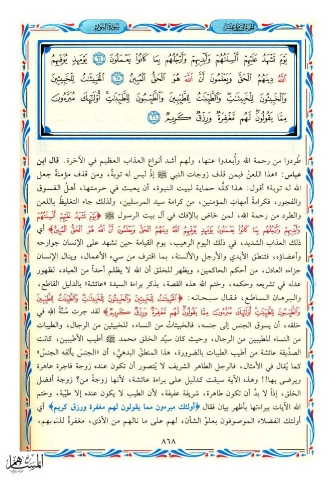 الجزء الثامن عشر
سورة النور
يَوْمَ تَشْهَدُ عَلَيْهِمْ أَلْسِنَتُهُمْ وَأَيْدِيهِمْ وَأَرْجُلُهُم بِمَا كَانُوا يَعْمَلُونَ ﴿٢٤﴾ يَوْمَئِذٍ يُوَفِّيهِمُ
اللَّهُ دِينَهُمُ الْحَقَّ وَيَعْلَمُونَ أَنَّ اللَّهَ هُوَ الْحَقُّ الْمُبِينُ ﴿٢٥﴾ الْخَبِيثَاتُ لِلْخَبِيثِينَ
وَالْخَبِيثُونَ لِلْخَبِيثَاتِ وَالطَّيِّبَاتُ لِلطَّيِّبِينَ وَالطَّيِّبُونَ لِلطَّيِّبَاتِ أُولَئِكَ مُبَرَّءُونَ
مِمَّا يَقُولُونَ لَهُم مَّغْفِرَةٌ وَرِزْقٌ كَرِيمٌ ﴿٢٦﴾
طُردوا من رحمة الله وأُبعدوا عنها، ولهم أشد أنواع العذاب العظيم في الآخرة. قال ابن
عباس: «هذا اللعنُ فيمن قذف زوجات النبي ﷺ إذ ليس له توبةٌ، ومن قذف مؤمنةً جعل
الله له توبة» أقول: هذا كلُّه حماية لبيت النبوة، أن يعبث في حرمتها، أهلُ الفسوق
والفجور، فكرامةُ أمهاتِ المؤمنين، من كرامة سيد المرسلين، ولذلك جاء التغليظ باللعن
والطرد من رحمة الله، لمن خاض بالإفك في آل بيت الرسول ﷺ ﴿يَوْمَ تَشْهَدُ عَلَيْهِمْ أَلْسِنَتُهُمْ
وَأَيْدِيهِمْ وَأَرْجُلُهُم بِمَا كَانُوا يَعْمَلُونَ يَوْمَئِذٍ يُوَفِّيهِمُ اللَّهُ دِينَهُمُ الْحَقَّ وَيَعْلَمُونَ أَنَّ اللَّهَ هُوَ الْحَقُّ الْمُبِينُ﴾ أي
ذلك العذاب الشديد، في ذلك اليوم الرهيب، يوم القيامة حين تشهد على الإنسان جوارحه
وأعضاؤه، فتنطق الأيدي والأرجل والألسنة، بما اقترف من سيء الأعمال، وينال الإنسان
جزاءه العادل، من أحكم الحاكمين، ويظهر للخلق أن الله لا يظلم أحداً من العباد، لظهور
عدله في تشريعه وحكمه، وختم الله هذه القصة، بذكر براءة السيدة «عائشة» بالدليل القاطع،
والبرهان الساطع، فقال سبحانه: ﴿الْخَبِيثَاتُ لِلْخَبِيثِينَ وَالْخَبِيثُونَ لِلْخَبِيثَاتِ وَالطَّيِّبَاتُ لِلطَّيِّبِينَ
وَالطَّيِّبُونَ لِلطَّيِّبَاتِ أُولَئِكَ مُبَرَّءُونَ مِمَّا يَقُولُونَ لَهُم مَّغْفِرَةٌ وَرِزْقٌ كَرِيمٌ﴾ لقد جرت سنَّةُ الله في
خلقه، أن يسوق الجنس إلى جنسه، فالخبيثات من النساء، للخبيثين من الرجال، والطيبات
من النساء للطيبين من الرجال، وحيث كان سيِّد الخلق محمد ﷺ أطيب الأطيبين، كانت
الصدِّيقة عائشة من أطيب الطيبات بالضرورة، هذا المنطقُ البدهيُّ، أن «الجنس يألفه الجنسُ»
كما يُقال في الأمثال، فالرجل الطاهر الشريف لا يُتصور أن تكون عنده زوجة فاجرة عاهرة
ويرضى بها!! وهذه الآية سيقت كدليل على براءة عائشة، لأنها زوجةُ مَنْ؟ زوجة أفضل
الخلق، إذاً لا بدَّ أن تكون طاهرة، شريفة عفيفة، لأن الطيب لا يكون عنده إلا طيِّبة، وختم
الله الآيات ببراءتها بأظهر بيان فقال ﴿أولئك مبرءون مما يقولون لهم مغفرة ورزق كريم﴾ أي
أولئك الفضلاء الموصوفون بعلوِّ الشأن، لهم على ما نالهم من الأذى، مغفرةٌ لذنوبهم،
٨٦٨